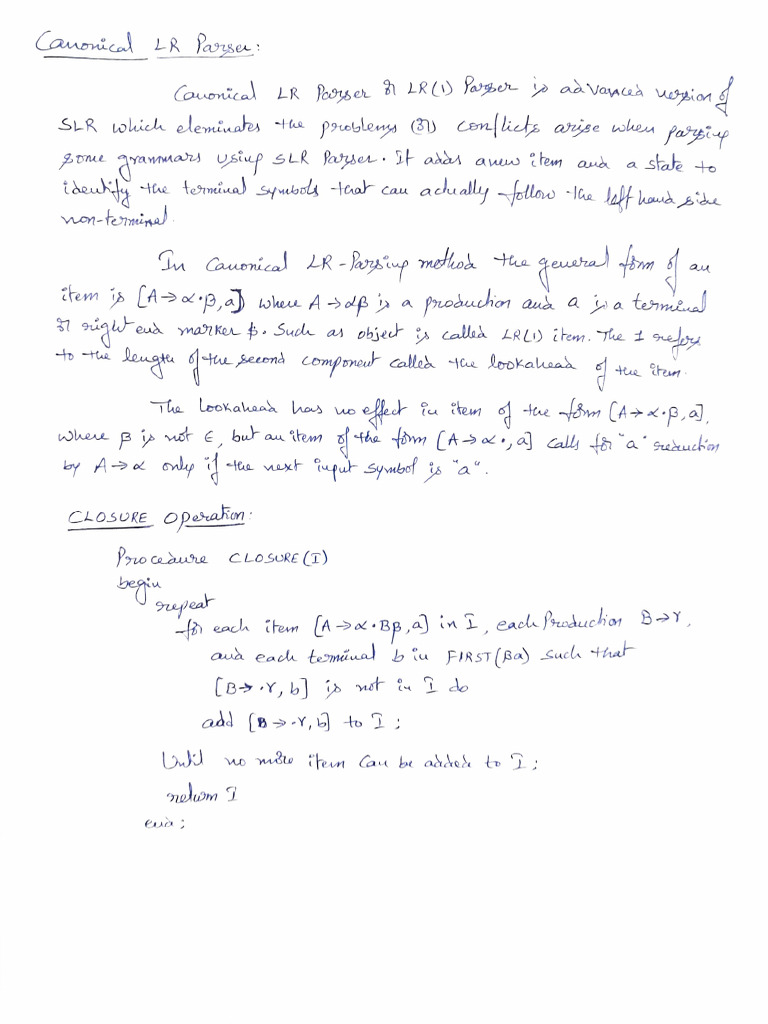 Canonical LR Parser:
Canonical LR Parser or LR(1) Parser is advanced version of
SLR which eleminates the problems (or) conflicts arise when parsing
some grammars using SLR Parser. It adds a new item and a state to
identify the terminal symbols that can actually follow the left hand side
non-terminal.
In Canonical LR-Parsing method the general form of an
item is [A→α·β,a] where A→αβ is a production and a is a terminal
or right end marker $. Such as object is called LR(1) item. The 1 refers
to the length of the second component called the lookahead of the item.
The Lookahead has no effect in item of the form [A→α·β,a],
where β is not ∈, but an item of the form [A→α·,a] calls for "a" reduction
by A→α only if the next input symbol is "a".
CLOSURE Operation:
Procedure CLOSURE(I)
begin
repeat
for each item [A→α·Bβ,a] in I, each Production B→γ,
and each terminal b in FIRST(βa) such that
[B→·γ,b] is not in I do
add [B→·γ,b] to I;
Until no more item can be added to I;
return I
end;